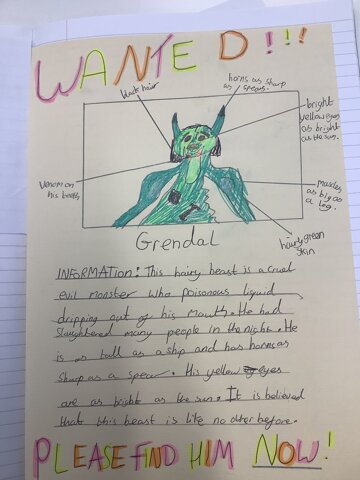 WANTED!!!
black hair
horns as sharp
as spears.
bright
yellow eyes
as bright
as the sun.
Venom on
his teeth
Muscles
as big as
a leg.
hairy green
skin
Grendal
INFORMATION: This hairy beast is a cruel
evil monster who poisonous liquid
dripping out of his mouth. He had
Slaughtered many people in the night. He
is as tall as a ship and has horns as
Sharp as a spear. His yellow eyes
are as bright as the sun. It is believed
that this beast is like no other before.
PLEASE FIND HIM NOW!